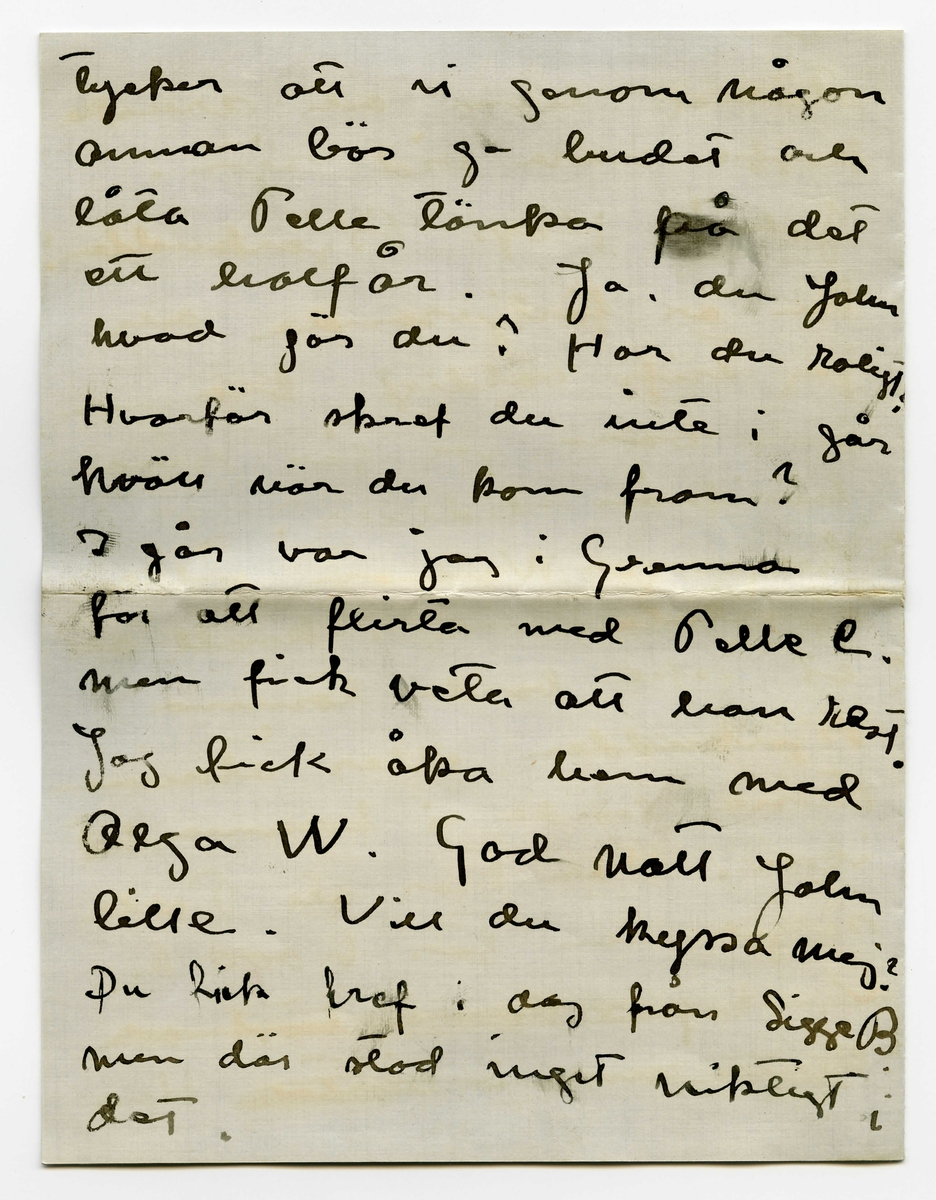 tycker att vi genom någon
annan bör ge budet och
låta Pelle tänka på det
ett halfår. Ja, du John
hvad gör du? Har du roligt?
Hvarför skref du inte i går
kväll när du kom fram?
I går var jag i Grenna
för att flirta med Pelle C.
men fick veta att han rest.
Jag fick åka hem med
Olga W. God natt John
lille. Vill du kyssa mej?
Du fick bref i dag från Sigge B
men där stod inget viktigt i
det.